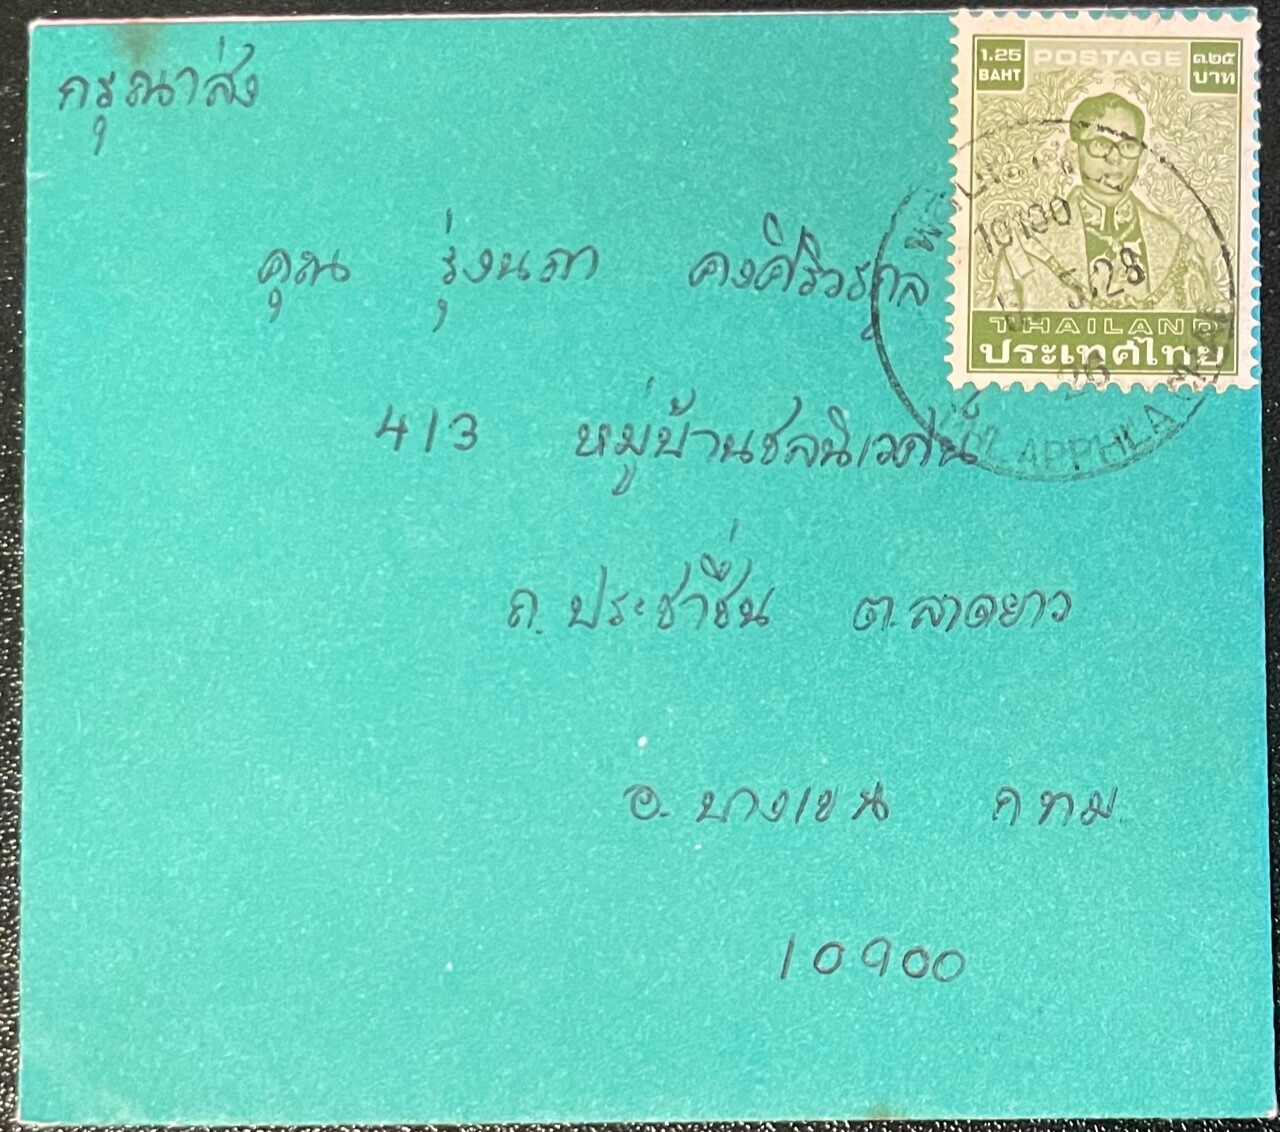 กรุณาส่ง
1.25 POSTAGE ๑.๒๕
BAHT บาท
10100
THAILAND
ประเทศไทย
PHLAPPHLA
คุณ รุ่งนภา คงศิริวรกุล
413 หมู่บ้านชลนิเวศน์
ถ.ประชาชื่น ต.ลาดยาว
อ.บางเขน กทม.
10900